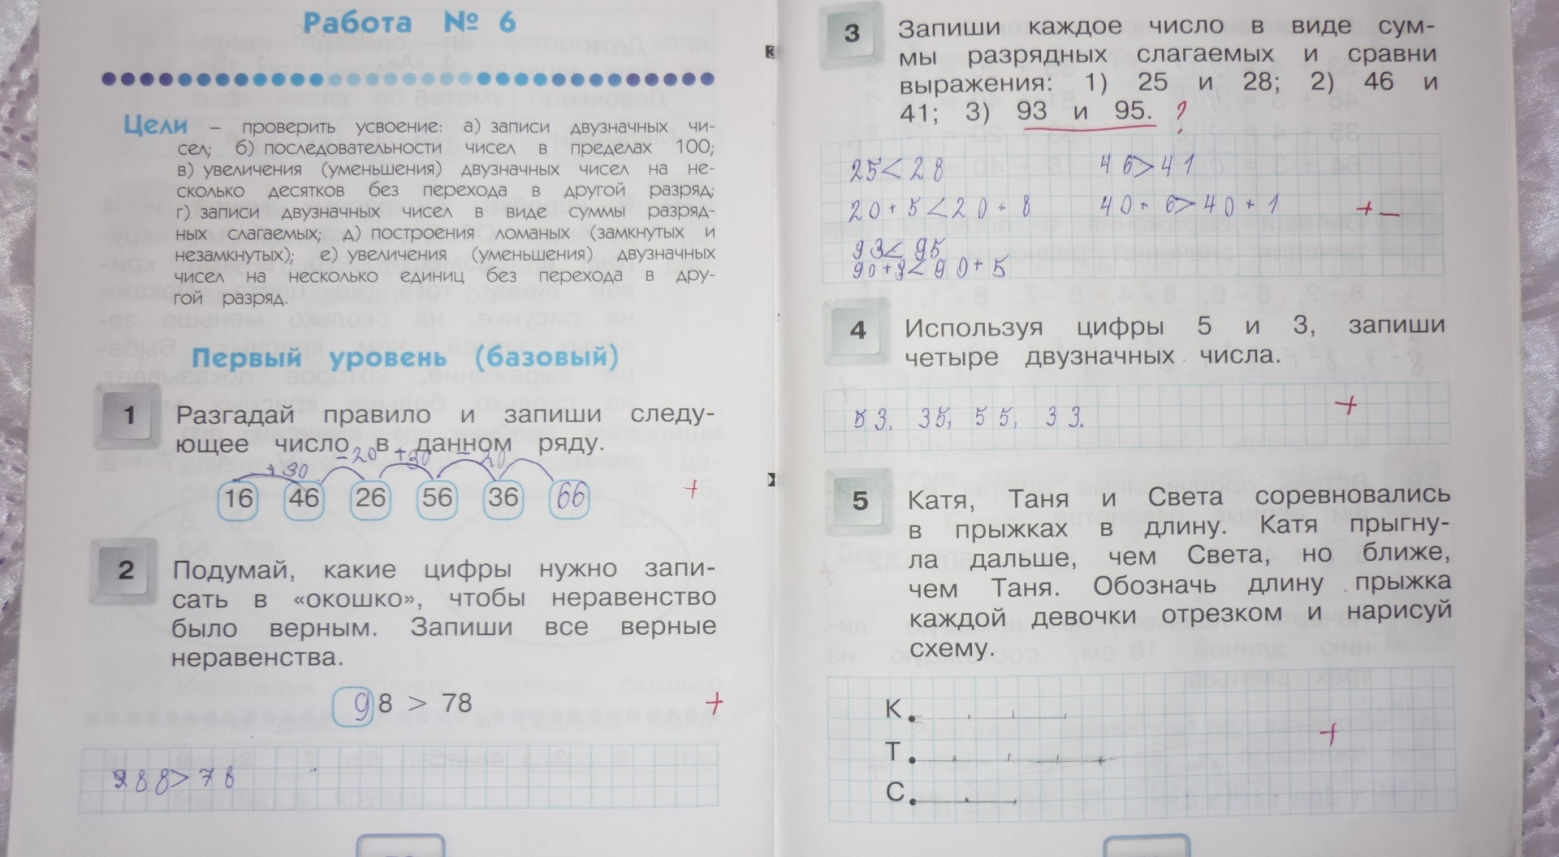 Работа № 6
Цели – проверить усвоение: а) записи двузначных чи-
сел; б) последовательности чисел в пределах 100;
в) увеличения (уменьшения) двузначных чисел на не-
сколько десятков без перехода в другой разряд;
г) записи двузначных чисел в виде суммы разряд-
ных слагаемых; д) построения ломаных (замкнутых и
незамкнутых); е) увеличения (уменьшения) двузначных
чисел на несколько единиц без перехода в дру-
гой разряд.
Первый уровень (базовый)
1 Разгадай правило и запиши следу-
ющее число в данном ряду.
+30 -20 +30 -20
16 46 26 56 36 66 +
2 Подумай, какие цифры нужно запи-
сать в «окошко», чтобы неравенство
было верным. Запиши все верные
неравенства.
98 > 78 +
88>78
3 Запиши каждое число в виде сум-
мы разрядных слагаемых и сравни
выражения: 1) 25 и 28; 2) 46 и
41; 3) 93 и 95. ?
25<28 46>41
20+5<20+8 40+6>40+1 + –
93<95
90+3<90+5
4 Используя цифры 5 и 3, запиши
четыре двузначных числа.
53, 35, 55, 33. +
5 Катя, Таня и Света соревновались
в прыжках в длину. Катя прыгну-
ла дальше, чем Света, но ближе,
чем Таня. Обозначь длину прыжка
каждой девочки отрезком и нарисуй
схему.
К.
Т. +
С.